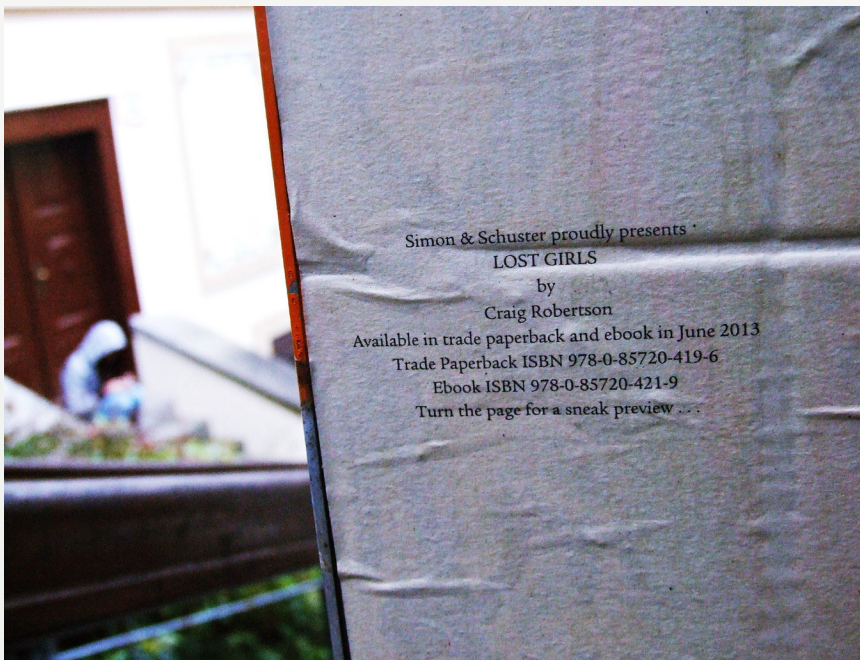 Simon & Schuster proudly presents
LOST GIRLS
by
Craig Robertson
Available in trade paperback and ebook in June 2013
Trade Paperback ISBN 978-0-85720-419-6
Ebook ISBN 978-0-85720-421-9
Turn the page for a sneak preview . . .